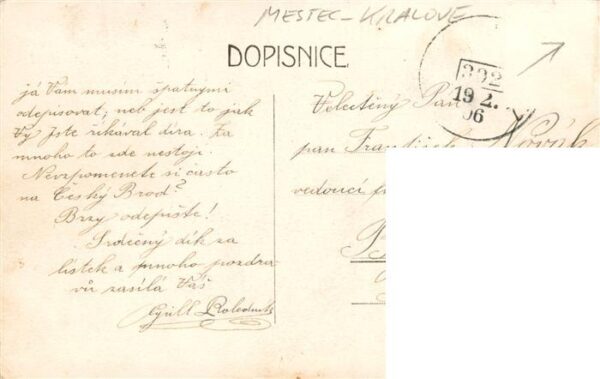 MESTEC-KRALOVE
DOPISNICE.
já Vám musím špatnými
odepisovat, neb jest to jak
Vy jste říkával díra. Za
mnoho to zde nestojí.
Nevzpomenete si často
na Český Brod?
Brzy odepište!
Srdečný dík za
lístek a mnoho pozdra
vů zasílá Váš
392
19 2.
06
Velectěný Pan
pan František Novák
vedoucí